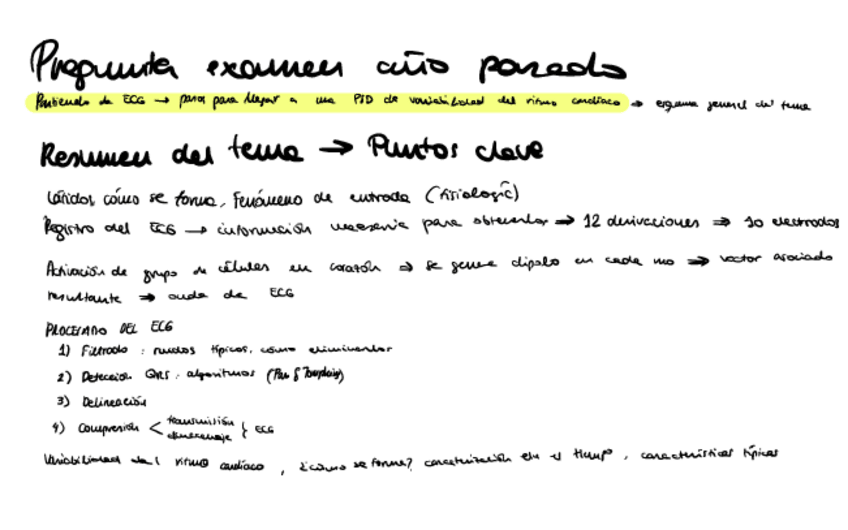 Pregunta examen año pasado
Partiendo de ECG → pasos para llegar a una PSD de variabilidad del ritmo cardíaco → esquema general del tema
Resumen del tema → Puntos clave
Latidos, cómo se forma, Fenómeno de entrada (fisiología)
Registro del ECG → información necesaria para obtenerlo ⇒ 12 derivaciones ⇒ 10 electrodos
Activación de grupo de células en corazón ⇒ se genera dipolo en cada uno ⇒ vector asociado
resultante ⇒ onda de ECG
PROCESADO DEL ECG
1) Filtrado: ruidos típicos, cómo eliminarlos
2) Detección QRS: algoritmos (Pan & Tompkins)
3) Delineación
4) Compresión < transmisión
almacenaje } ECG
Variabilidad del ritmo cardíaco, ¿cómo se forma? caracterización en el tiempo, características típicas